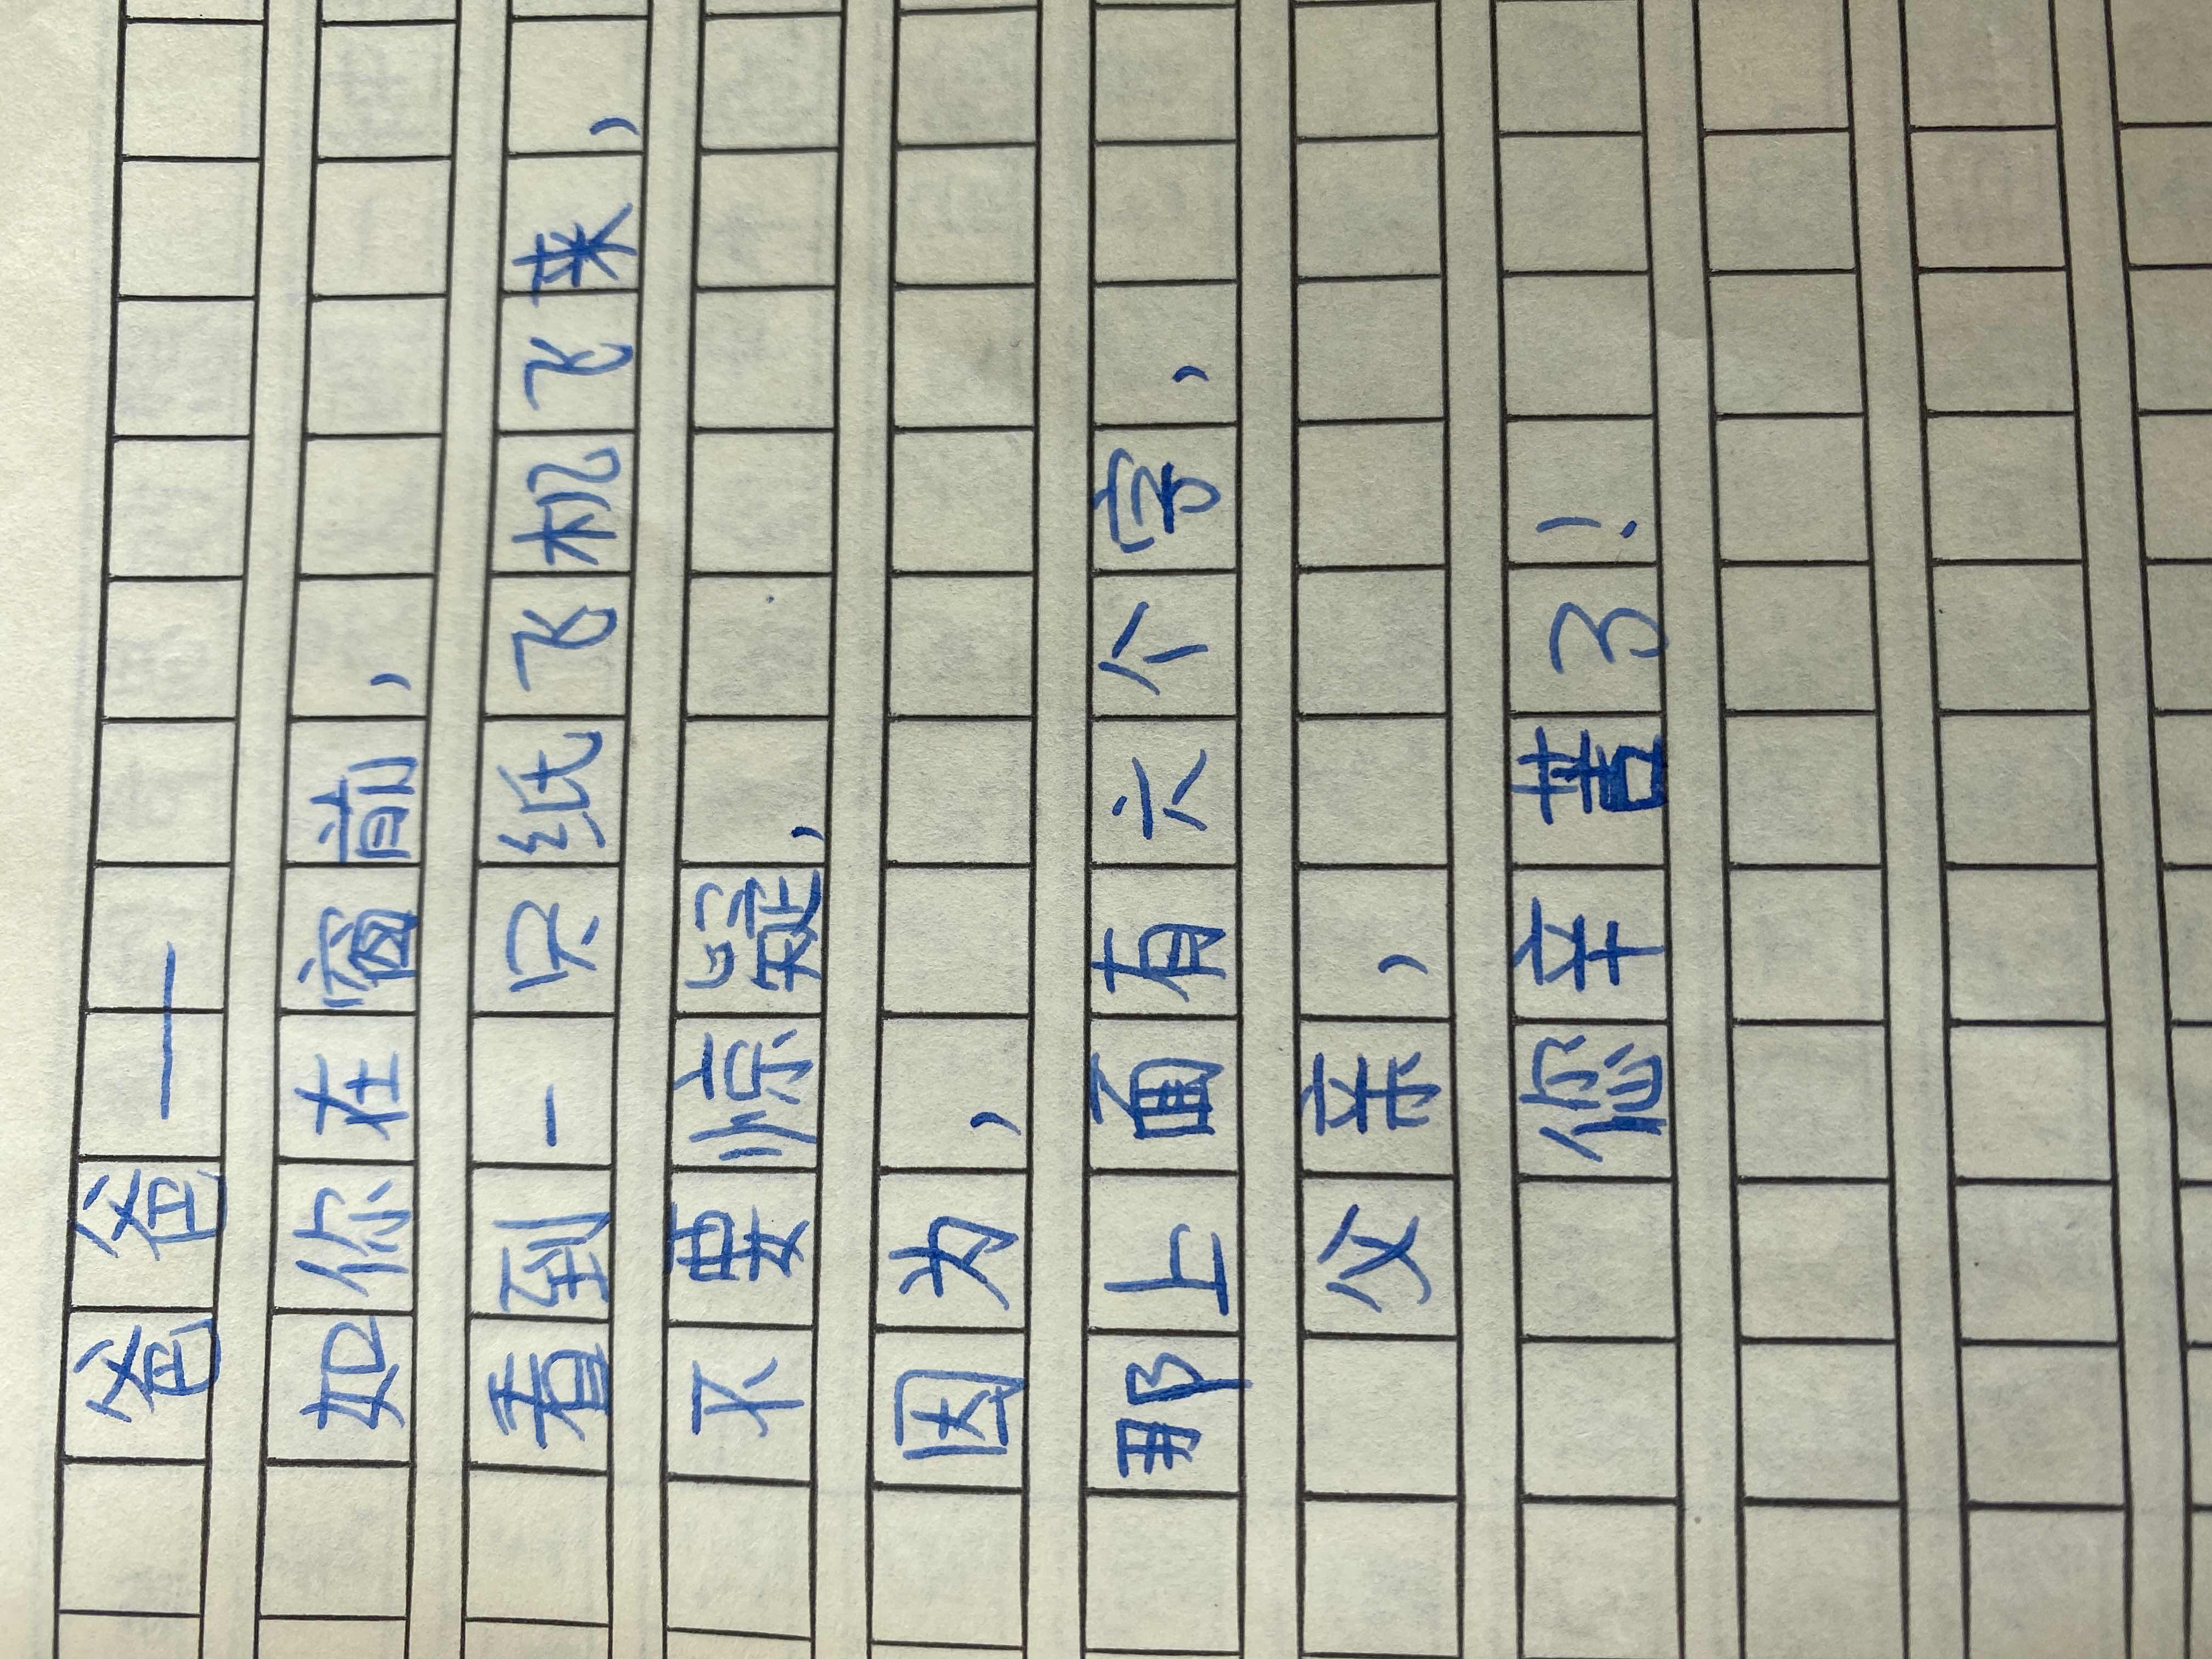 爸爸——
如你在窗前，
看到一只纸飞机飞来，
不要惊疑，
因为，
那上面有六个字，
父亲，
您辛苦了！